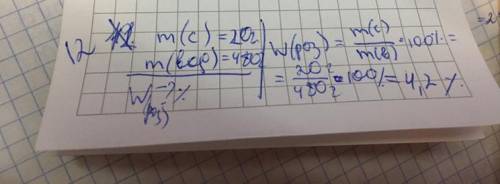 12 m(c) = 20г
m(H₂O) = 480г
W(роз) - ? %
W(роз) = m(c) / m(в) · 100% =
= 20г / 480г · 100% = 4,2 %